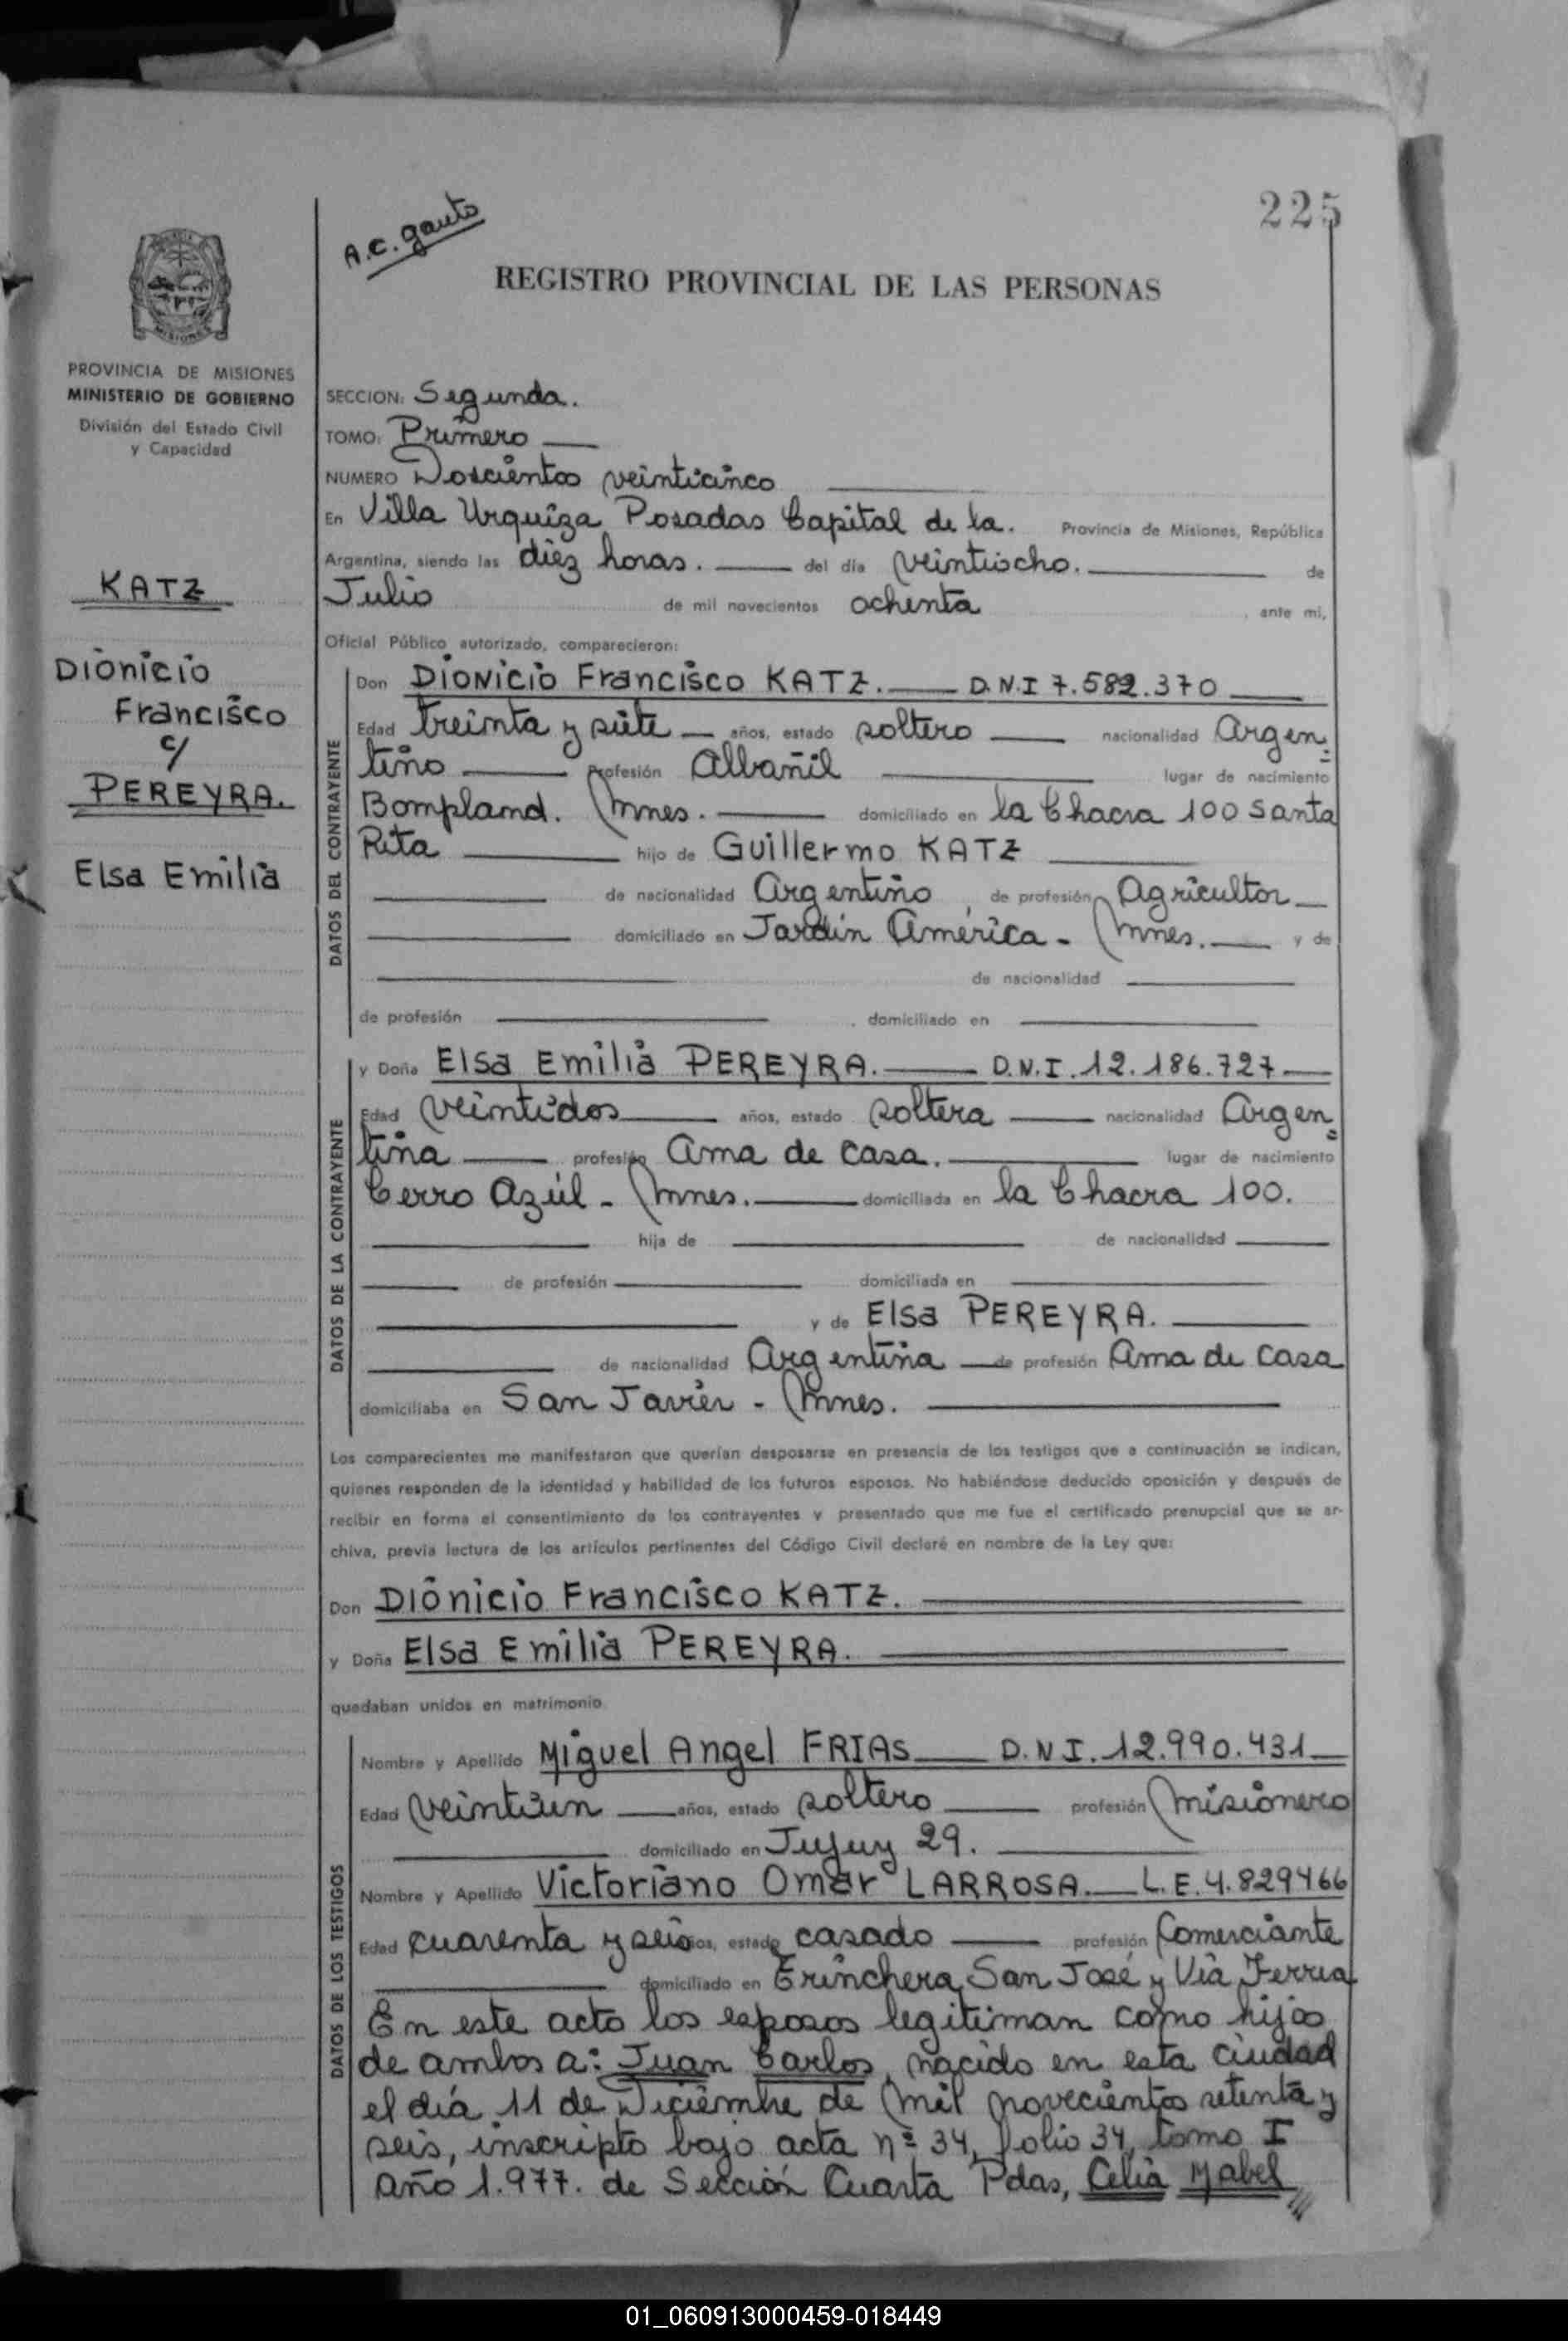 225
A.C. Gauto
REGISTRO PROVINCIAL DE LAS PERSONAS
PROVINCIA DE MISIONES
MINISTERIO DE GOBIERNO
División del Estado Civil
y Capacidad
KATZ
Dionicio
Francisco
c/
PEREYRA.
Elsa Emilia
SECCION: Segunda.
TOMO: Primero
NUMERO Doscientos veinticinco
En Villa Urquiza Posadas Capital de la. Provincia de Misiones, República
Argentina, siendo las diez horas. del día veintiocho. de
Julio de mil novecientos ochenta, ante mi,
Oficial Público autorizado, comparecieron:
DATOS DEL CONTRAYENTE
Don Dionicio Francisco KATZ. D.N.I 7.582.370
Edad treinta y siete años, estado soltero nacionalidad Argen=
tino profesión Albañil lugar de nacimiento
Bompland. Mnes. domiciliado en la Chacra 100 Santa
Rita hijo de Guillermo KATZ
de nacionalidad Argentino, de profesión Agricultor
domiciliado en Jardín América - Mnes. y de
de nacionalidad
de profesión , domiciliado en
DATOS DE LA CONTRAYENTE
y Doña Elsa Emilia PEREYRA. D.N.I. 12.186.727
Edad veintidos años, estado soltera nacionalidad Argen=
tina profesión Ama de casa. lugar de nacimiento
Cerro Azúl - Mnes. domiciliada en la Chacra 100.
hija de de nacionalidad
de profesión domiciliada en
y de Elsa PEREYRA.
de nacionalidad Argentina de profesión Ama de casa
domiciliaba en San Javier - Mnes.
Los comparecientes me manifestaron que querían desposarse en presencia de los testigos que a continuación se indican,
quienes responden de la identidad y habilidad de los futuros esposos. No habiéndose deducido oposición y después de
recibir en forma el consentimiento de los contrayentes y presentado que me fue el certificado prenupcial que se ar-
chiva, previa lectura de los artículos pertinentes del Código Civil declaré en nombre de la Ley que:
Don Dionicio Francisco KATZ.
y Doña Elsa Emilia PEREYRA.
quedaban unidos en matrimonio
DATOS DE LOS TESTIGOS
Nombre y Apellido Miguel Angel FRIAS D.N.I. 12.990.431
Edad veintiun años, estado soltero profesión Misionero
domiciliado en Jujuy 29.
Nombre y Apellido Victoriano Omar LARROSA. L.E. 4.829466
Edad cuarenta y seis años, estado casado profesión Comerciante
domiciliado en Trinchera San José y Via Ferrea
En este acto los esposos legitiman como hijos
de ambos a: Juan Carlos, nacido en esta ciudad
el día 11 de Diciembre de mil novecientos setenta y
seis, inscripto bajo acta nº 34, folio 34, tomo I
año 1.977. de Sección Cuarta Pdas, Celia Mabel
01_060913000459-018449